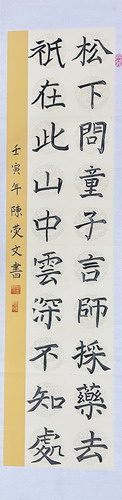 松下問童子言師採藥去
祇在此山中雲深不知處
壬寅年陳熒文書